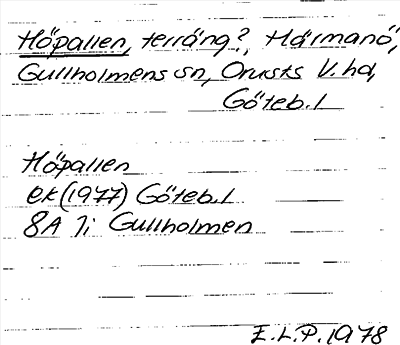 Höpallen, terräng?, Härmanö,
Gullholmens sn, Orusts V. hd,
Göteb. l
Höpallen
ek (1977) Göteb. l
8A 7i Gullholmen
E.L.P. 1978